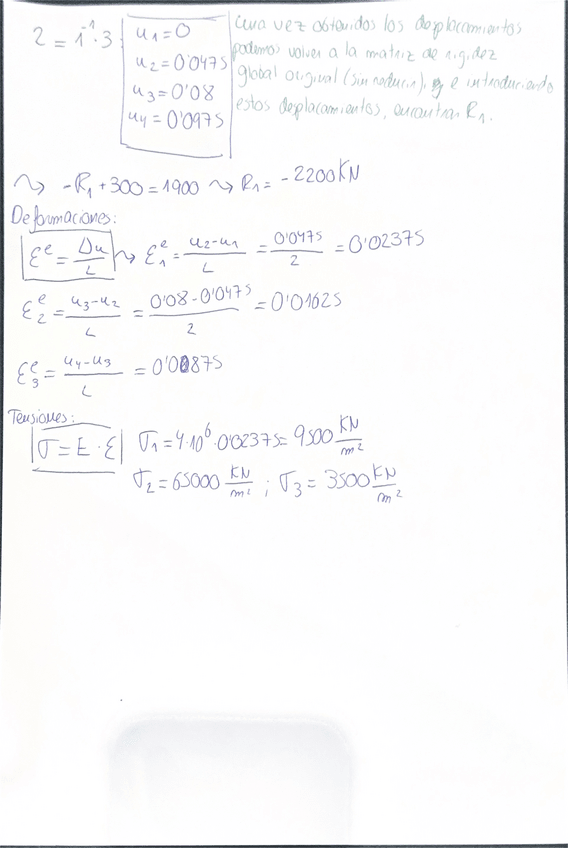 2 = 1⁻¹·3
u1=0
u2=0'0475
u3=0'08
u4=0'0975
Una vez obtenidos los desplacamientos
podemos volver a la matriz de rigidez
global original (sin reducir), e introduciendo
estos desplacamientos, encontrar R1.
⇝ -R1 + 300 = 1900 ⇝ R1 = -2200 KN
Deformaciones:
εᵉ = Δu/L ⇝ ε1ᵉ = (u2-u1)/L = 0'0475/2 = 0'02375
ε2ᵉ = (u3-u2)/L = (0'08-0'0475)/2 = 0'01625
ε3ᵉ = (u4-u3)/L = 0'00875
Tensiones:
σ = E·ε σ1 = 4·10⁶·0'02375 = 9500 KN/m²
σ2 = 65000 KN/m² ; σ3 = 3500 KN/m²